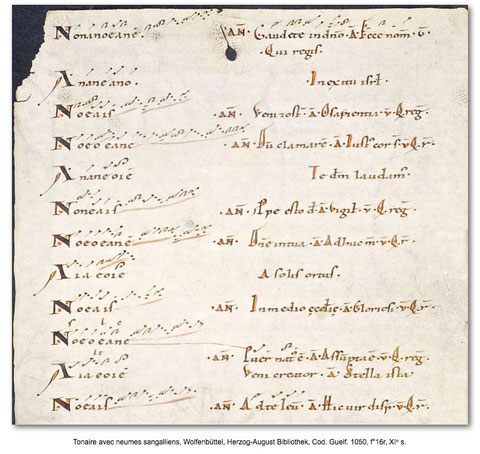 Nonanoeane. AN Gaudete in dño. A Ecce nom. v
Qui regis.
Ananeano. In exitu isrl.
Noeais AN Veni A O sapientia v Q reg
Noeoeane AN Dũ clamarẽ. A Iust cor v Q r
Ananeoie Te dm laudam
Noneais AN spe esto A vigil v Q reg
Noeoeane AN Dñe in tua A Adhuc v Q r
Aiaeoie A solis ortus.
Noeais AN In medio A Glorios v Q r
Noeoeane
AN Puer A Assũptae v Q reg
Aiaeoie Veni creator. A Stella ista
Noeais AN Ad te leu A Hic uir disp v Q r
Tonaire avec neumes sangalliens, Wolfenbüttel, Herzog-August Bibliothek, Cod. Guelf. 1050, f°16r, XIᵉ s.